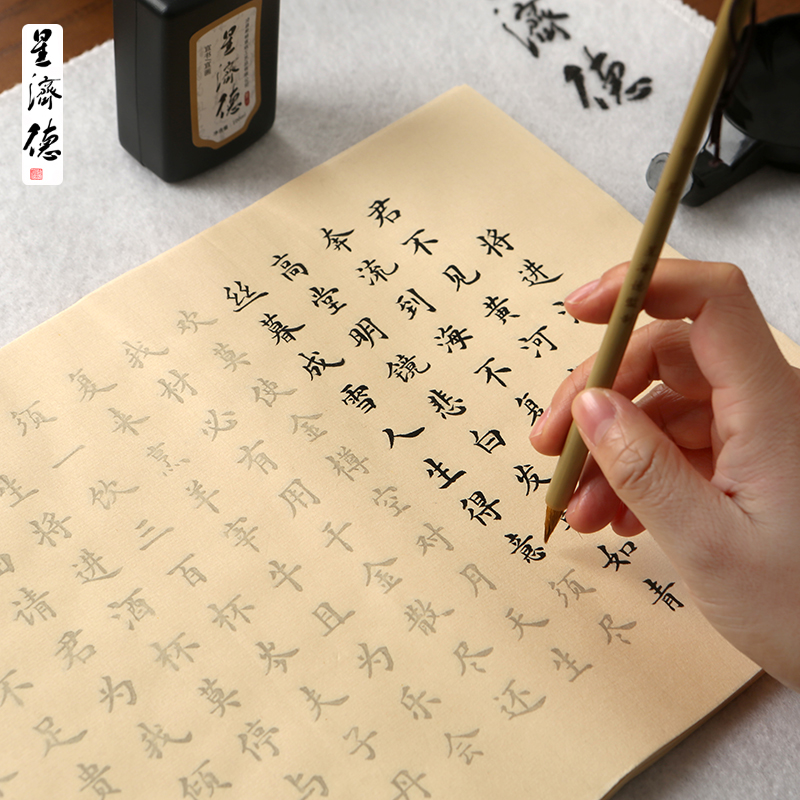 星濟德
星濟德
濟德
将进
君不见黄河
奔流到海不复
高堂明镜悲白发如青
丝暮成雪人生得意须尽
欢莫使金樽空对月天生
我材必有用千金散尽还
复来烹羊宰牛且为乐会
须一饮三百杯岑夫子丹
生将进酒杯莫停与
请君为我倾
不足贵